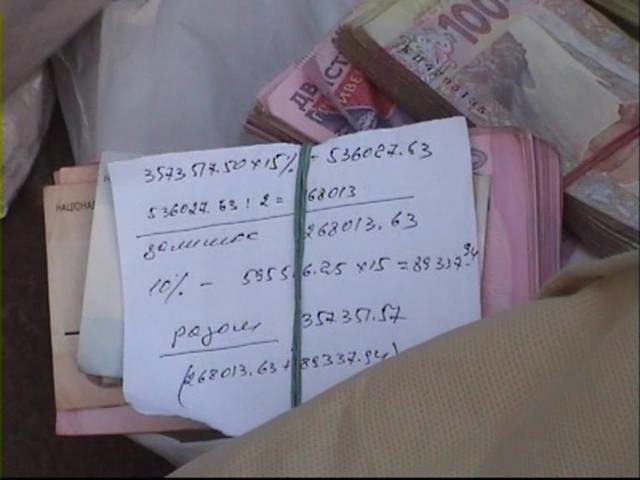 100
ДВІСТ
ГРИВЕ
НАЦІОНА
3573517.50 × 15% - 536027.63
536027.63 : 2 = 268013
залишок 268013.63
10% - × 15 = 89337.94
разом 357351.57
(268013.63 + 89337.94)